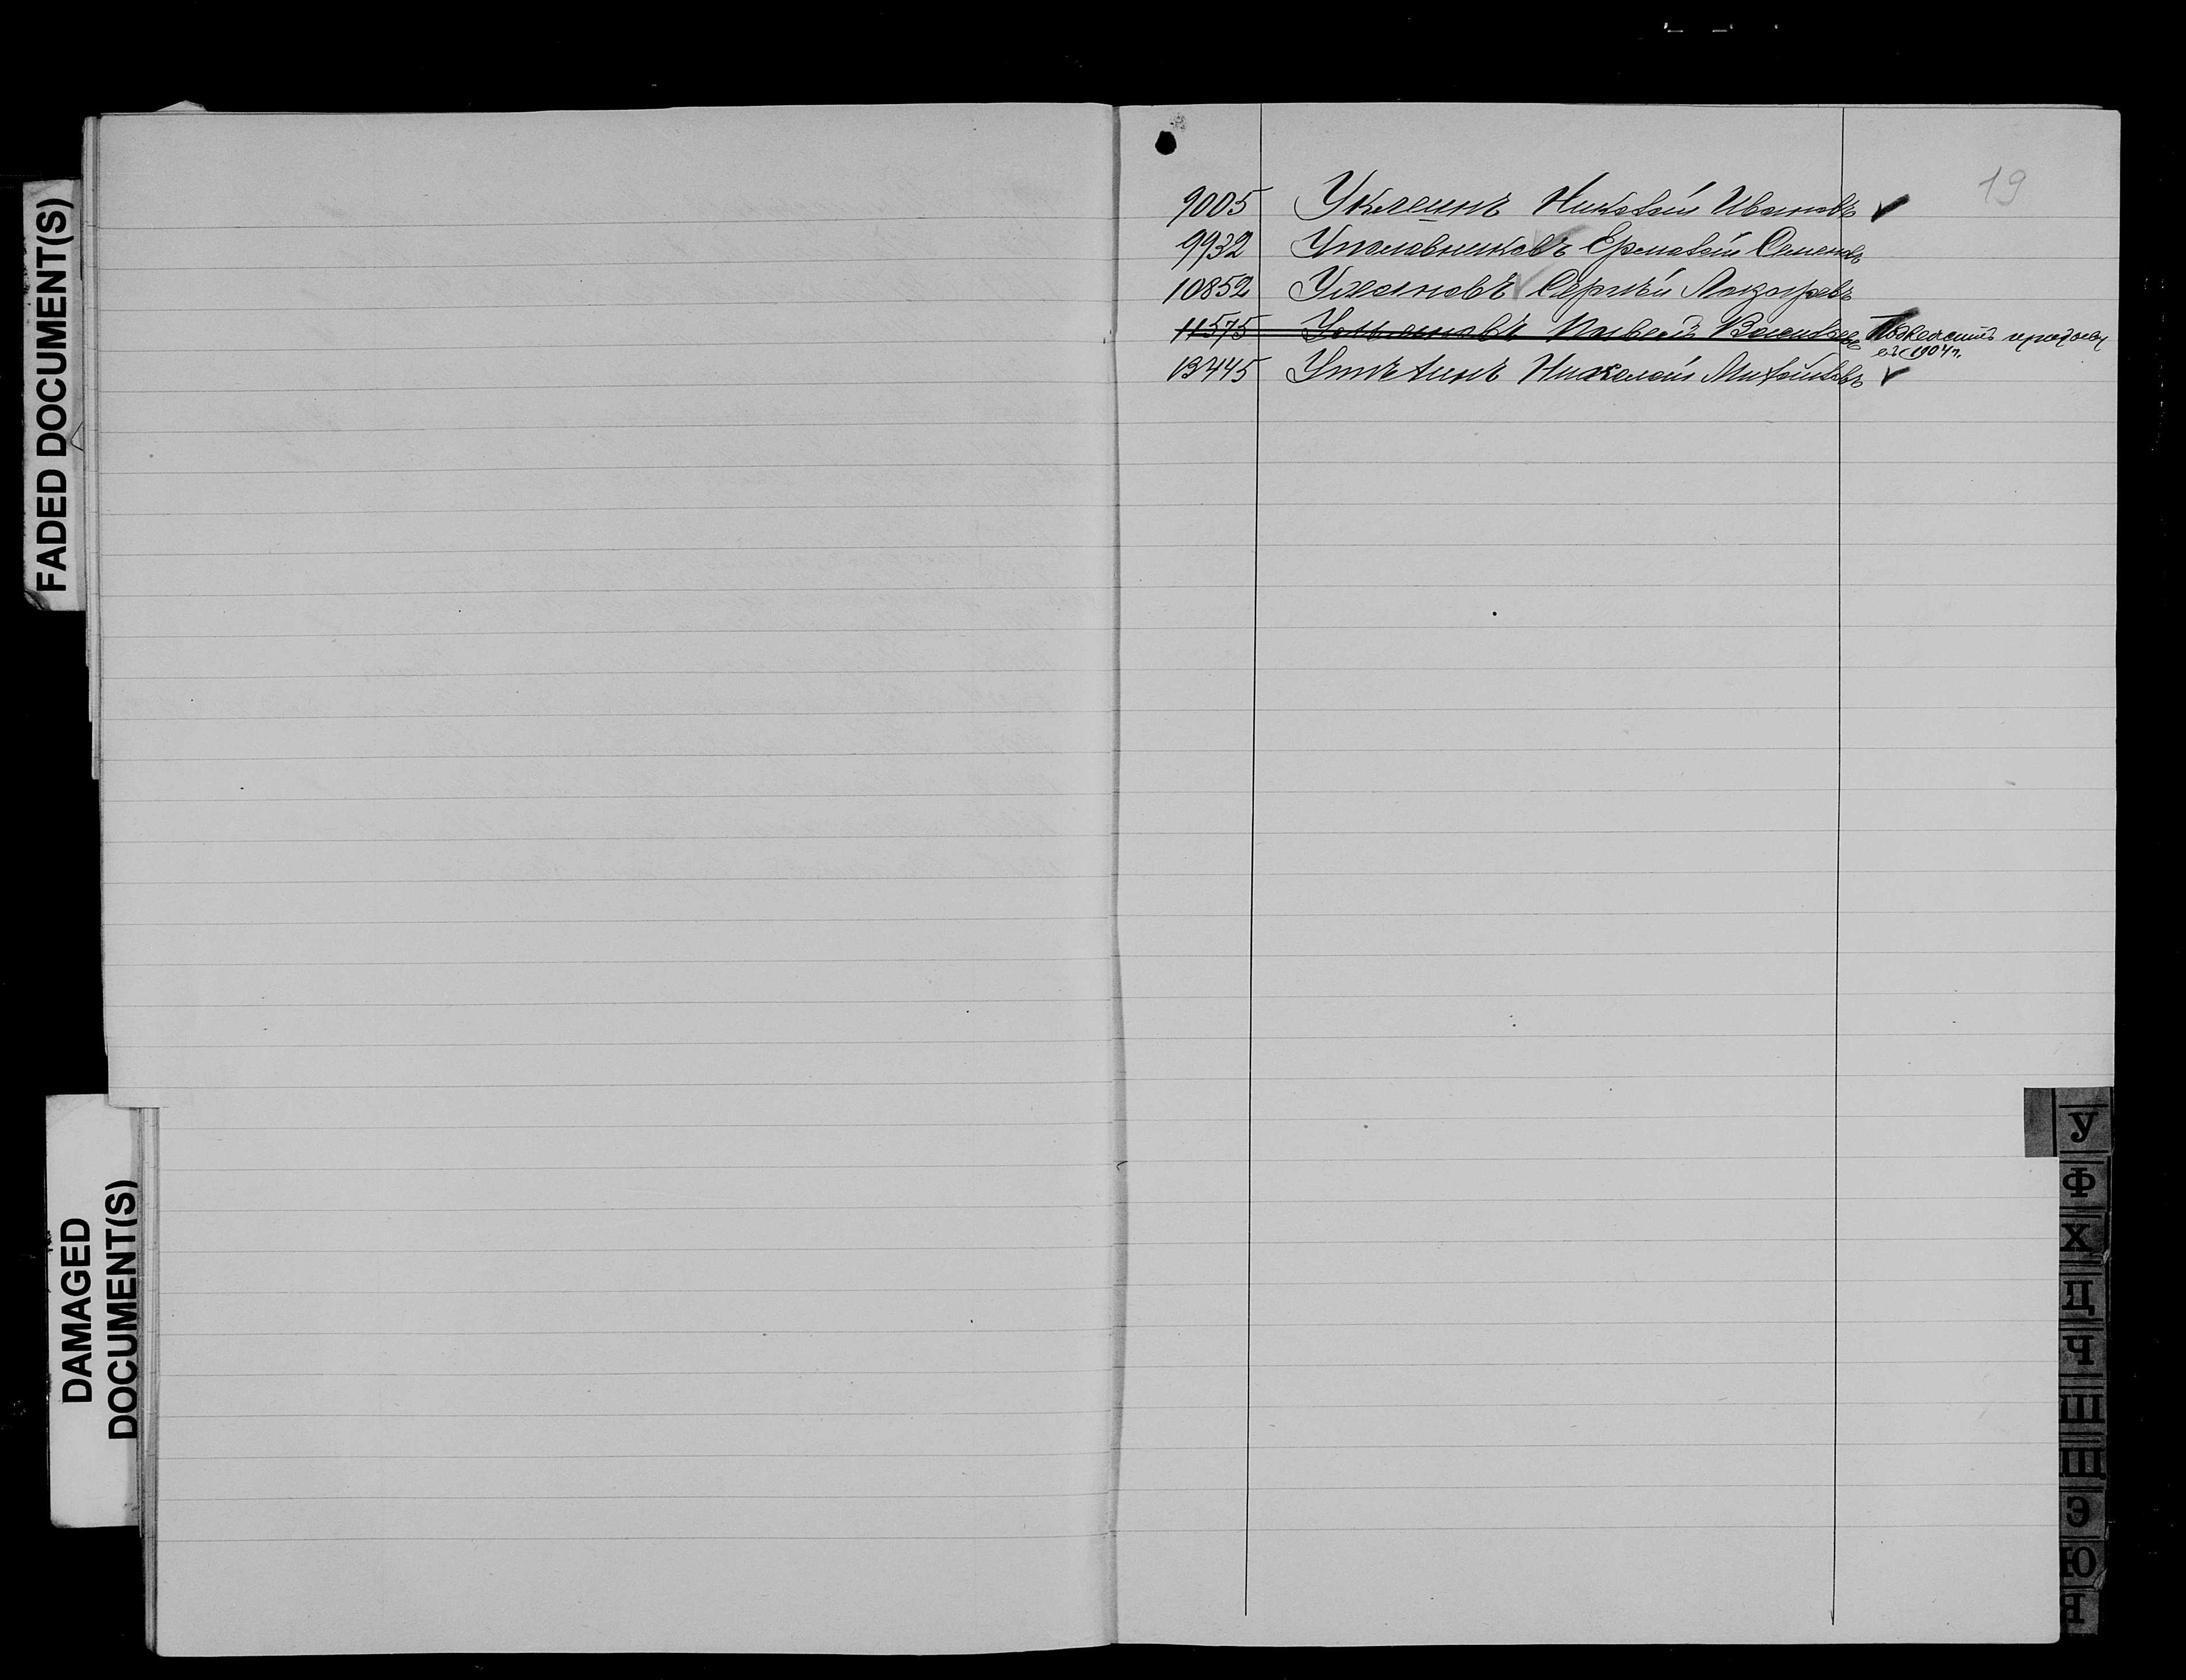 FADED DOCUMENT(S)
DAMAGED
DOCUMENT(S)
19
9005 Уклеинъ Николай Ивановъ
9932 Уполовниковъ Ермолай Семеновъ
10852 Улановъ Сергѣй Лазаревъ
11575 Ульяновъ Матвей Васильевъ
1904 г.
13445 Утѣхинъ Николай Михайловъ
У
Ф
Х
Ц
Ч
Ш
Щ
Э
Ю
Я